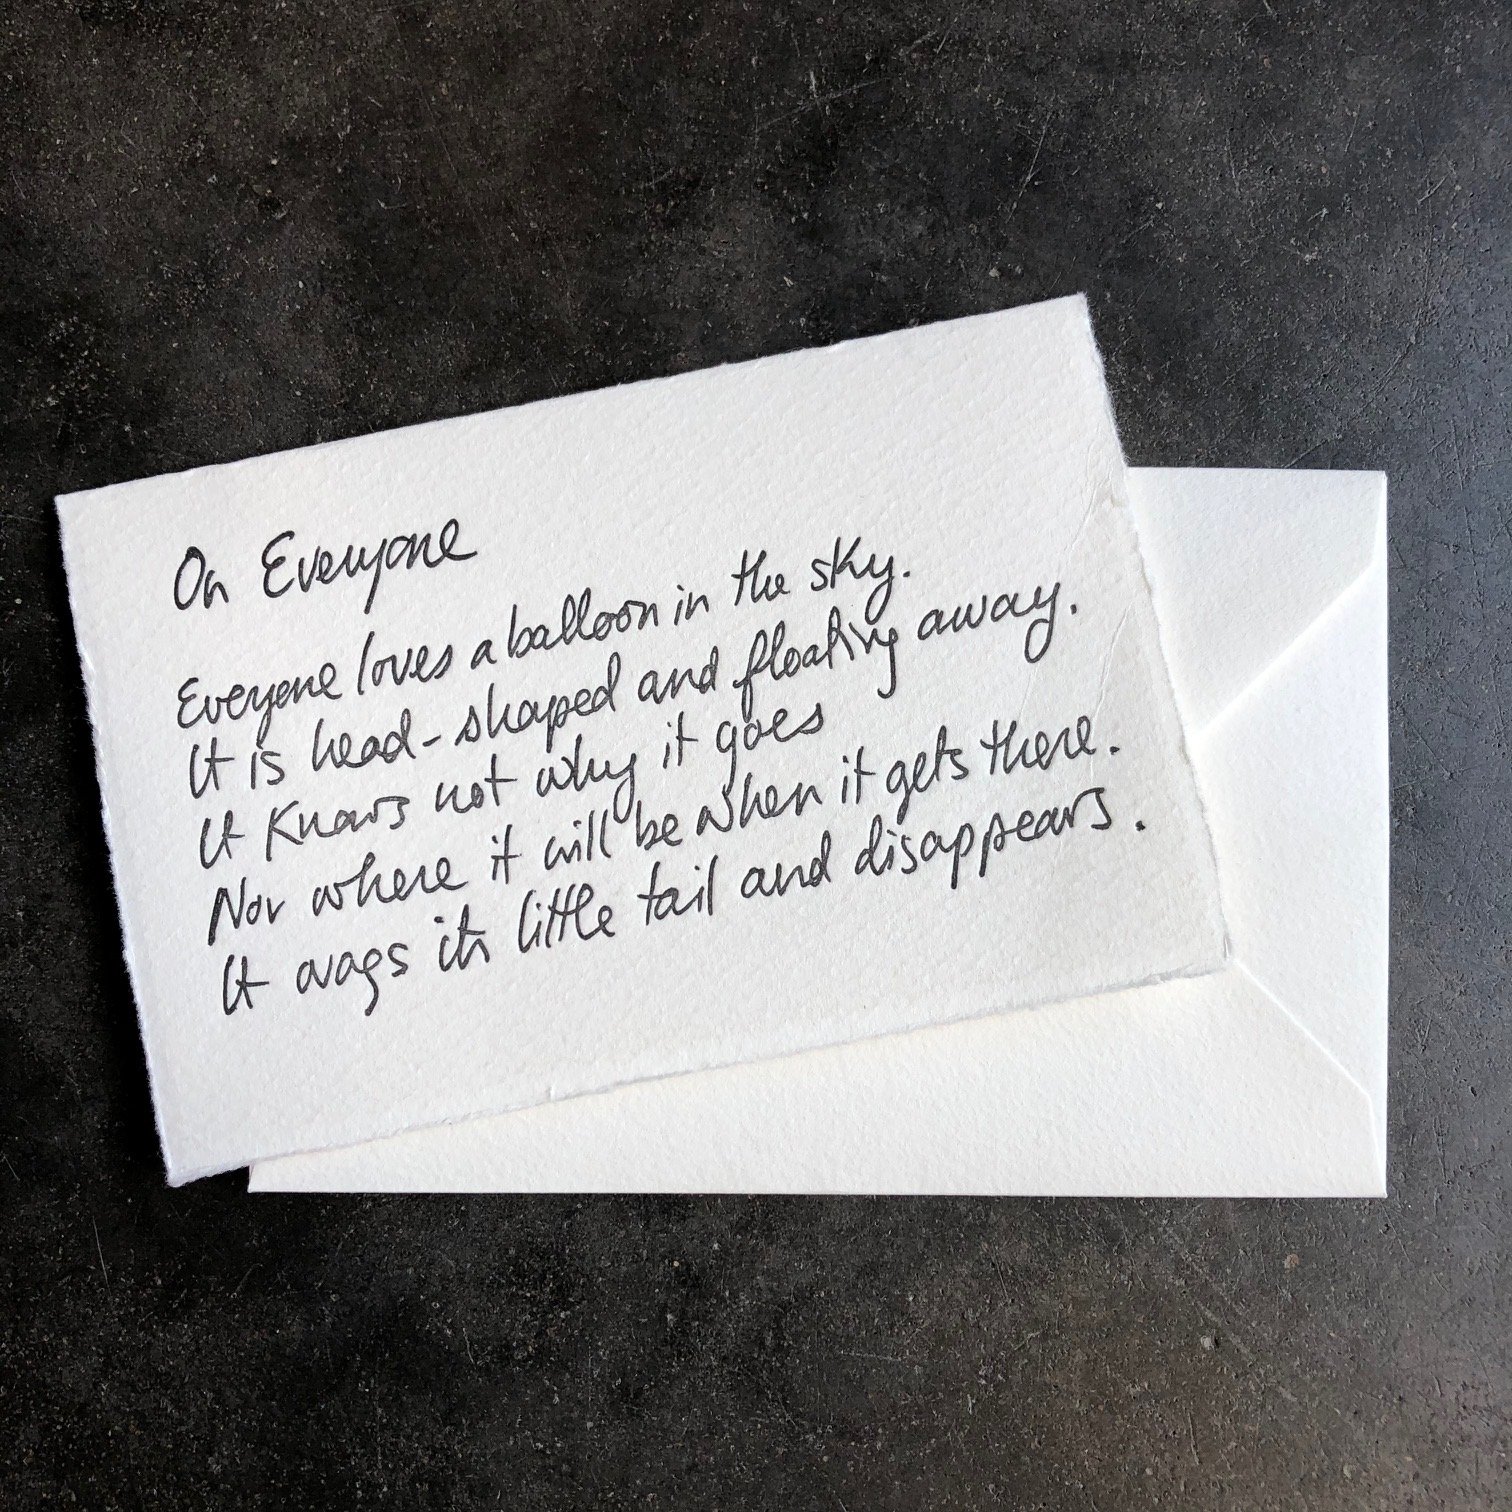 On Everyone
Everyone loves a balloon in the sky.
It is head-shaped and floating away.
It knows not why it goes
Nor where it will be when it gets there.
It wags its little tail and disappears.